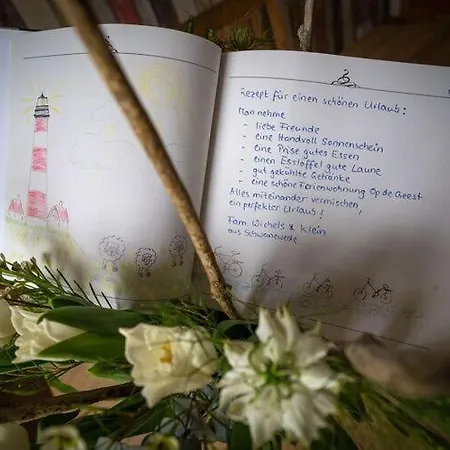 Rezept für einen schönen Urlaub:
Man nehme
- liebe Freunde
- eine Handvoll Sonnenschein
- eine Prise gutes Essen
- einen Esslöffel gute Laune
- gut gekühlte Getränke
- eine schöne Ferienwohnung Op de Geest
Alles miteinander vermischen,
ein perfekter Urlaub!
Fam. Wichels & Klein
aus Schwanewede